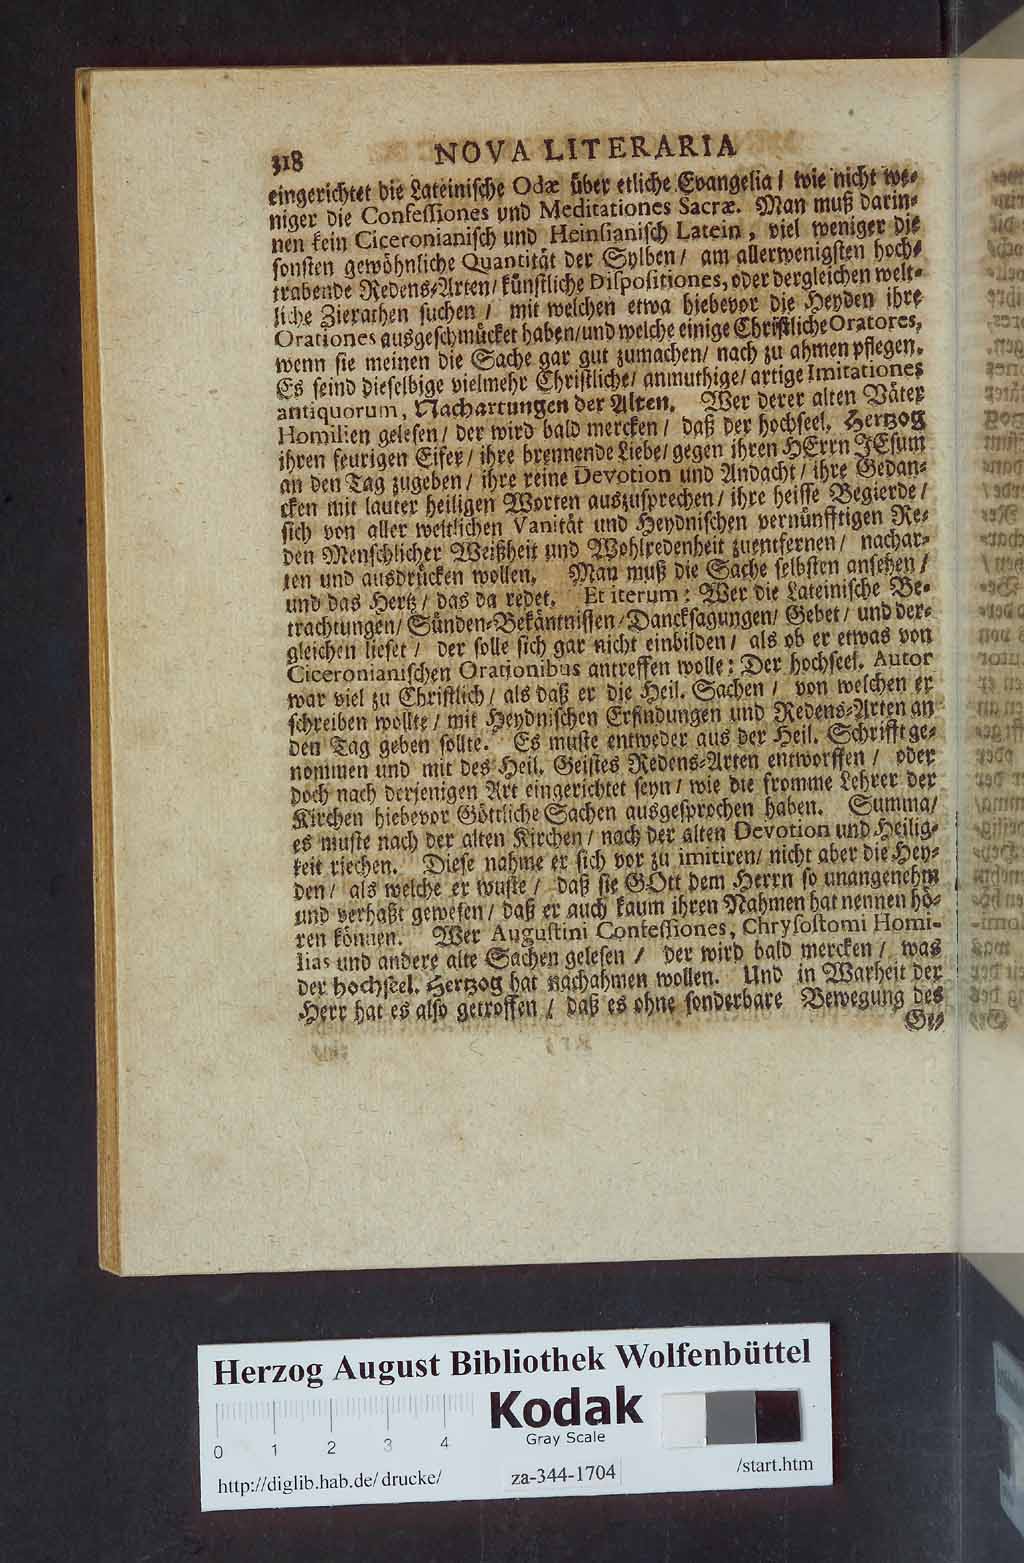 318 NOVA LITERARIA
eingerichtet die Lateinische Odæ über etliche Evangelia / wie nicht we-
niger die Confessiones und Meditationes Sacræ. Man muß darin-
nen kein Ciceronianisch und Heinsianisch Latein, viel weniger die
sonsten gewöhnliche Quantität der Sylben / am allerwenigsten hoch-
trabende Redens-Arten / künstliche Dispositiones, oder dergleichen welt-
liche Zierathen suchen / mit welchen etwa hiebevor die Heyden ihre
Orationes ausgeschmücket haben / und welche einige Christliche Oratores,
wenn sie meinen die Sache gar gut zumachen / nach zu ahmen pflegen.
Es seind dieselbige vielmehr Christliche / anmuthige / artige Imitationes
antiquorum, Nachartungen der Alten. Wer derer alten Väter
Homilien gelesen / der wird bald mercken / daß der hochseel. Hertzog
ihren feurigen Eifer / ihre brennende Liebe / gegen ihren HErrn JEsum
an den Tag zugeben / ihre reine Devotion und Andacht / ihre Gedan-
cken mit lauter heiligen Worten auszusprechen / ihre heisse Begierde /
sich von aller weltlichen Vanität und Heydnischen vernünfftigen Re-
den Menschlicher Weißheit und Wohlredenheit zuentfernen / nachar-
ten und ausdrücken wollen. Man muß die Sache selbsten ansehen /
und das Hertz / das da redet. Et iterum: Wer die Lateinische Be-
trachtungen / Sünden-Bekäntnissen / Dancksagungen / Gebet / und der-
gleichen lieset / der solle sich gar nicht einbilden / als ob er etwas von
Ciceronianischen Orationibus antreffen wolle: Der hochseel. Autor
war viel zu Christlich / als daß er die Heil. Sachen / von welchen er
schreiben wollte / mit Heydnischen Erfindungen und Redens-Arten an
den Tag geben sollte. Es muste entweder aus der Heil. Schrifft ge-
nommen und mit des Heil. Geistes Redens-Arten entworffen / oder
doch nach derjenigen Art eingerichtet seyn / wie die fromme Lehrer der
Kirchen hiebevor Göttliche Sachen ausgesprochen haben. Summa /
es muste nach der alten Kirchen / nach der alten Devotion und Heilig-
keit riechen. Diese nahme er sich vor zu imitiren / nicht aber die Hey-
den / als welche er wuste / daß sie GOtt dem Herrn so unangenehm
und verhaßt gewesen / daß er auch kaum ihren Nahmen hat nennen hö-
ren können. Wer Augustini Confessiones, Chrysostomi Homi-
lias und andere alte Sachen gelesen / der wird bald mercken / was
der hochseel. Hertzog hat nachahmen wollen. Und in Warheit der
Herr hat es also getroffen / daß es ohne sonderbare Bewegung des
Ge-
Herzog August Bibliothek Wolfenbüttel
Kodak
Gray Scale
0 1 2 3 4
http://diglib.hab.de/drucke/ za-344-1704 /start.htm